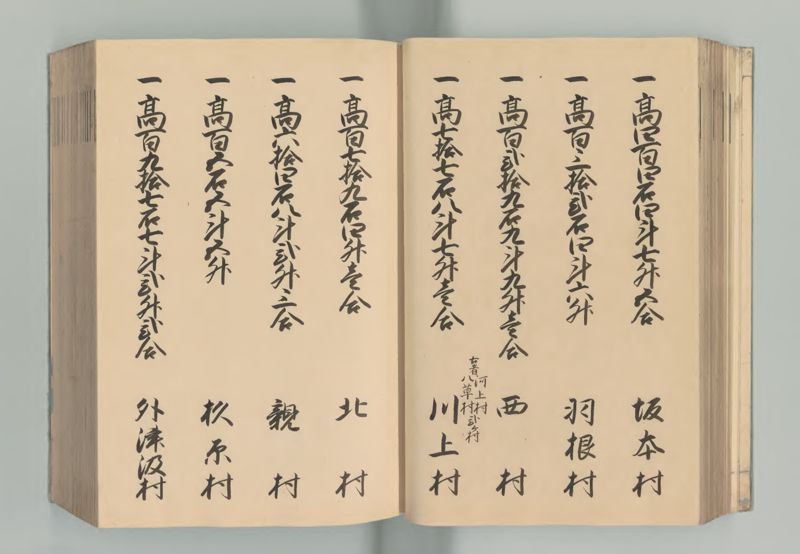 一高四百四石四斗七升五合 坂本村
一高百三拾弐石四斗六升 羽根村
一高百弐拾九石九斗九升壱合 西村
古者河上村
八草村弐ケ村
一高七拾七石八斗七升壱合 川上村
一高百七拾九石四升壱合 北村
一高六拾四石八斗弐升三合 親村
一高百五石五斗五升 杉原村
一高百九拾七石七斗弐升弐合 外津汲村